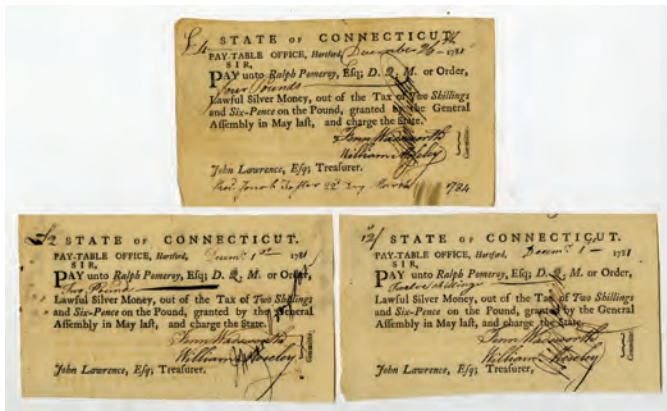 £4 STATE OF CONNECTICUT.
PAY-TABLE OFFICE, Hartford, December 26th 1781
SIR,
PAY unto Ralph Pomeroy, Esq; D. Q. M. or Order,
four Pounds
Lawful Silver Money, out of the Tax of Two Shillings
and Six-Pence on the Pound, granted by the General
Assembly in May last, and charge the State.
Fenn Wadsworth
William Moseley
Committee.
John Lawrence, Esq; Treasurer.
22d Day March 1784
£2 STATE OF CONNECTICUT.
PAY-TABLE OFFICE, Hartford, Decemr. 1st 1781
SIR,
PAY unto Ralph Pomeroy, Esq; D. Q. M. or Order,
Two Pounds
Lawful Silver Money, out of the Tax of Two Shillings
and Six-Pence on the Pound, granted by the General
Assembly in May last, and charge the State.
Fenn Wadsworth
William Moseley
Committee.
John Lawrence, Esq; Treasurer.
12/ STATE OF CONNECTICUT.
PAY-TABLE OFFICE, Hartford, Decemr. 1 1781
SIR,
PAY unto Ralph Pomeroy, Esq; D. Q. M. or Order,
Twelve shillings
Lawful Silver Money, out of the Tax of Two Shillings
and Six-Pence on the Pound, granted by the General
Assembly in May last, and charge the State.
Fenn Wadsworth
William Moseley
Committee.
John Lawrence, Esq; Treasurer.